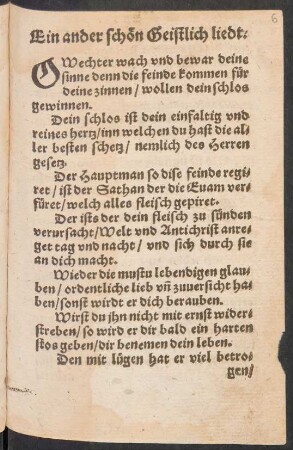 6
Ein ander schön Geistlich liedt:
O Wechter wach vnd bewar deine
sinne denn die feinde kommen für
deine zinnen / wollen dein schlos
gewinnen.
Dein schlos ist dein einfaltig vnd
reines hertz / inn welchen du hast die al/
ler besten schetz / nemlich des Herren
gesetz.
Der Hauptman so dise feinde regi/
ret / ist der Sathan der die Euam ver/
füret / welch alles fleisch gepiret.
Der ists der dein fleisch zu sünden
verursacht / Welt vnd Antichrist anre/
get tag vnd nacht / vnd sich durch sie
an dich macht.
Wieder die mustu lebendigen glau/
ben / ordentliche lieb vn̄ zuuersicht ha/
ben / sonst wirdt er dich berauben.
Wirst du jhn nicht mit ernst wider/
streben / so wird er dir bald ein harten
stos geben / dir benemen dein leben.
Den mit lügen hat er viel betro/
gen /